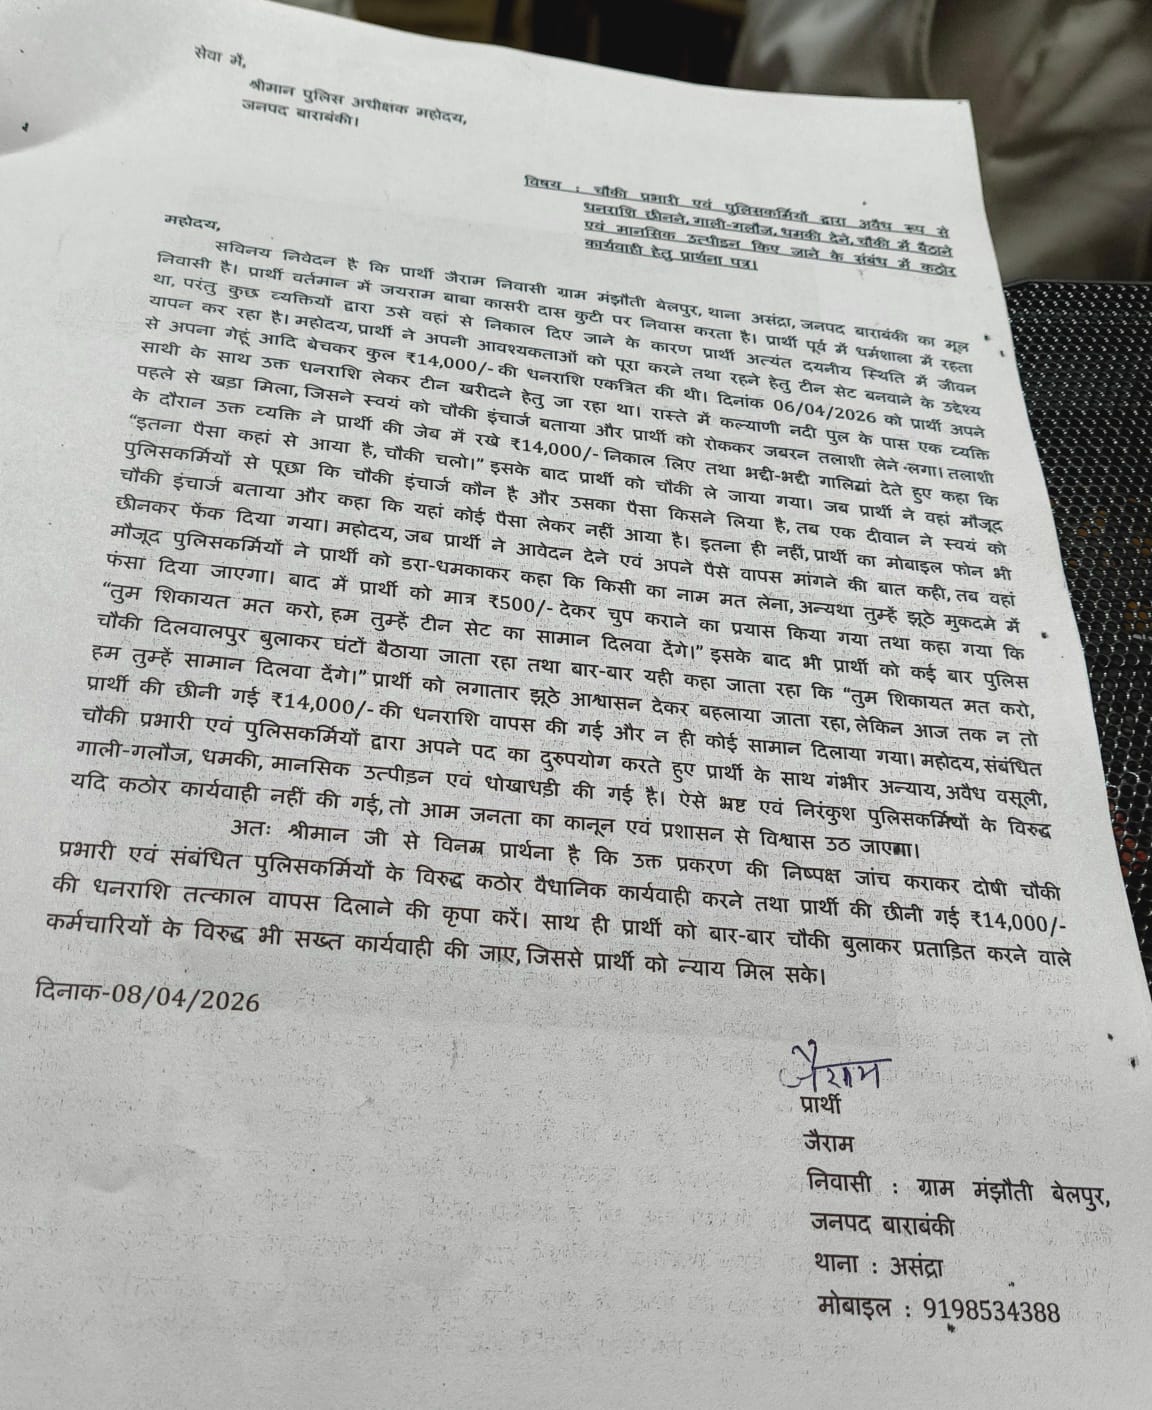 सेवा में,
श्रीमान पुलिस अधीक्षक महोदय,
जनपद बाराबंकी।
विषय : चौकी प्रभारी एवं पुलिसकर्मियों द्वारा अवैध रूप से
धनराशि छीनने, गाली-गलौज, धमकी देने, चौकी में बैठाने
एवं मानसिक उत्पीड़न किए जाने के संबंध में कठोर
कार्यवाही हेतु प्रार्थना पत्र।
महोदय,
सविनय निवेदन है कि प्रार्थी जैराम निवासी ग्राम मंझौती बेलपुर, थाना असंद्रा, जनपद बाराबंकी का मूल
निवासी है। प्रार्थी वर्तमान में जयराम बाबा कासरी दास कुटी पर निवास करता है। प्रार्थी पूर्व में धर्मशाला में रहता
था, परंतु कुछ व्यक्तियों द्वारा उसे वहां से निकाल दिए जाने के कारण प्रार्थी अत्यंत दयनीय स्थिति में जीवन
यापन कर रहा है। महोदय, प्रार्थी ने अपनी आवश्यकताओं को पूरा करने तथा रहने हेतु टीन सेट बनवाने के उद्देश्य
से अपना गेहूं आदि बेचकर कुल ₹14,000/- की धनराशि एकत्रित की थी। दिनांक 06/04/2026 को प्रार्थी अपने
साथी के साथ उक्त धनराशि लेकर टीन खरीदने हेतु जा रहा था। रास्ते में कल्याणी नदी पुल के पास एक व्यक्ति
पहले से खड़ा मिला, जिसने स्वयं को चौकी इंचार्ज बताया और प्रार्थी को रोककर जबरन तलाशी लेने लगा। तलाशी
के दौरान उक्त व्यक्ति ने प्रार्थी की जेब में रखे ₹14,000/- निकाल लिए तथा भद्दी-भद्दी गालियां देते हुए कहा कि
“इतना पैसा कहां से आया है, चौकी चलो।” इसके बाद प्रार्थी को चौकी ले जाया गया। जब प्रार्थी ने वहां मौजूद
पुलिसकर्मियों से पूछा कि चौकी इंचार्ज कौन है और उसका पैसा किसने लिया है, तब एक दीवान ने स्वयं को
चौकी इंचार्ज बताया और कहा कि यहां कोई पैसा लेकर नहीं आया है। इतना ही नहीं, प्रार्थी का मोबाइल फोन भी
छीनकर फेंक दिया गया। महोदय, जब प्रार्थी ने आवेदन देने एवं अपने पैसे वापस मांगने की बात कही, तब वहां
मौजूद पुलिसकर्मियों ने प्रार्थी को डरा-धमकाकर कहा कि किसी का नाम मत लेना, अन्यथा तुम्हें झूठे मुकदमे में
फंसा दिया जाएगा। बाद में प्रार्थी को मात्र ₹500/- देकर चुप कराने का प्रयास किया गया तथा कहा गया कि
“तुम शिकायत मत करो, हम तुम्हें टीन सेट का सामान दिलवा देंगे।” इसके बाद भी प्रार्थी को कई बार पुलिस
चौकी दिलवालपुर बुलाकर घंटों बैठाया जाता रहा तथा बार-बार यही कहा जाता रहा कि “तुम शिकायत मत करो,
हम तुम्हें सामान दिलवा देंगे।” प्रार्थी को लगातार झूठे आश्वासन देकर बहलाया जाता रहा, लेकिन आज तक न तो
प्रार्थी की छीनी गई ₹14,000/- की धनराशि वापस की गई और न ही कोई सामान दिलाया गया। महोदय, संबंधित
चौकी प्रभारी एवं पुलिसकर्मियों द्वारा अपने पद का दुरुपयोग करते हुए प्रार्थी के साथ गंभीर अन्याय, अवैध वसूली,
गाली-गलौज, धमकी, मानसिक उत्पीड़न एवं धोखाधड़ी की गई है। ऐसे भ्रष्ट एवं निरंकुश पुलिसकर्मियों के विरुद्ध
यदि कठोर कार्यवाही नहीं की गई, तो आम जनता का कानून एवं प्रशासन से विश्वास उठ जाएगा।
अतः श्रीमान जी से विनम्र प्रार्थना है कि उक्त प्रकरण की निष्पक्ष जांच कराकर दोषी चौकी
प्रभारी एवं संबंधित पुलिसकर्मियों के विरुद्ध कठोर वैधानिक कार्यवाही करने तथा प्रार्थी की छीनी गई ₹14,000/-
की धनराशि तत्काल वापस दिलाने की कृपा करें। साथ ही प्रार्थी को बार-बार चौकी बुलाकर प्रताड़ित करने वाले
कर्मचारियों के विरुद्ध भी सख्त कार्यवाही की जाए, जिससे प्रार्थी को न्याय मिल सके।
दिनाक-08/04/2026
जैराम
प्रार्थी
जैराम
निवासी : ग्राम मंझौती बेलपुर,
जनपद बाराबंकी
थाना : असंद्रा
मोबाइल : 9198534388